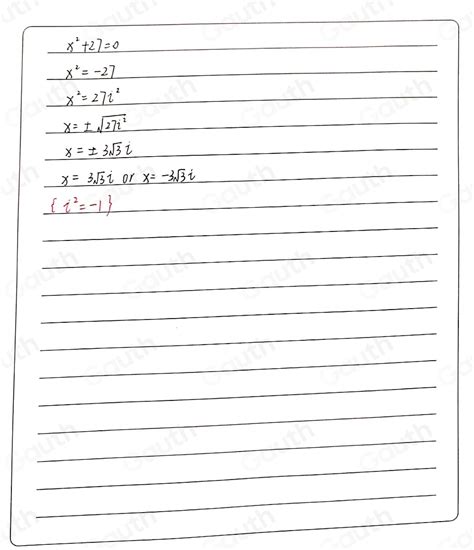 x²+27=0
x²=-27
x²=27i²
x=±√27i²
x=±3√3i
x=3√3i or x=-3√3i
{i²=-1}